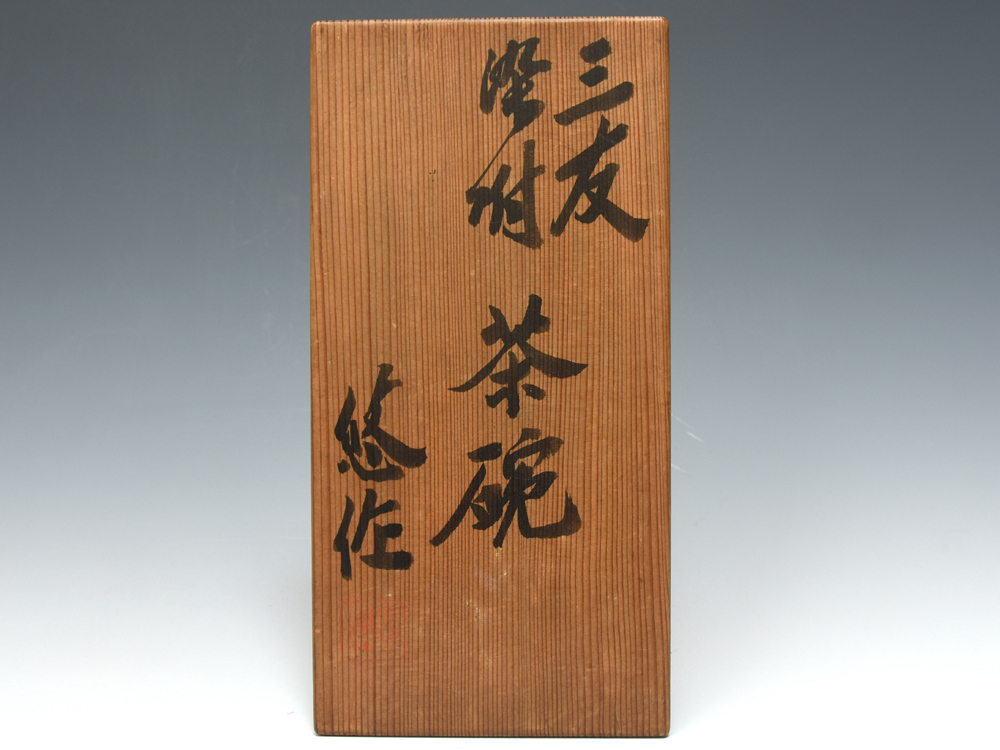 三友
染附
茶碗
悠作